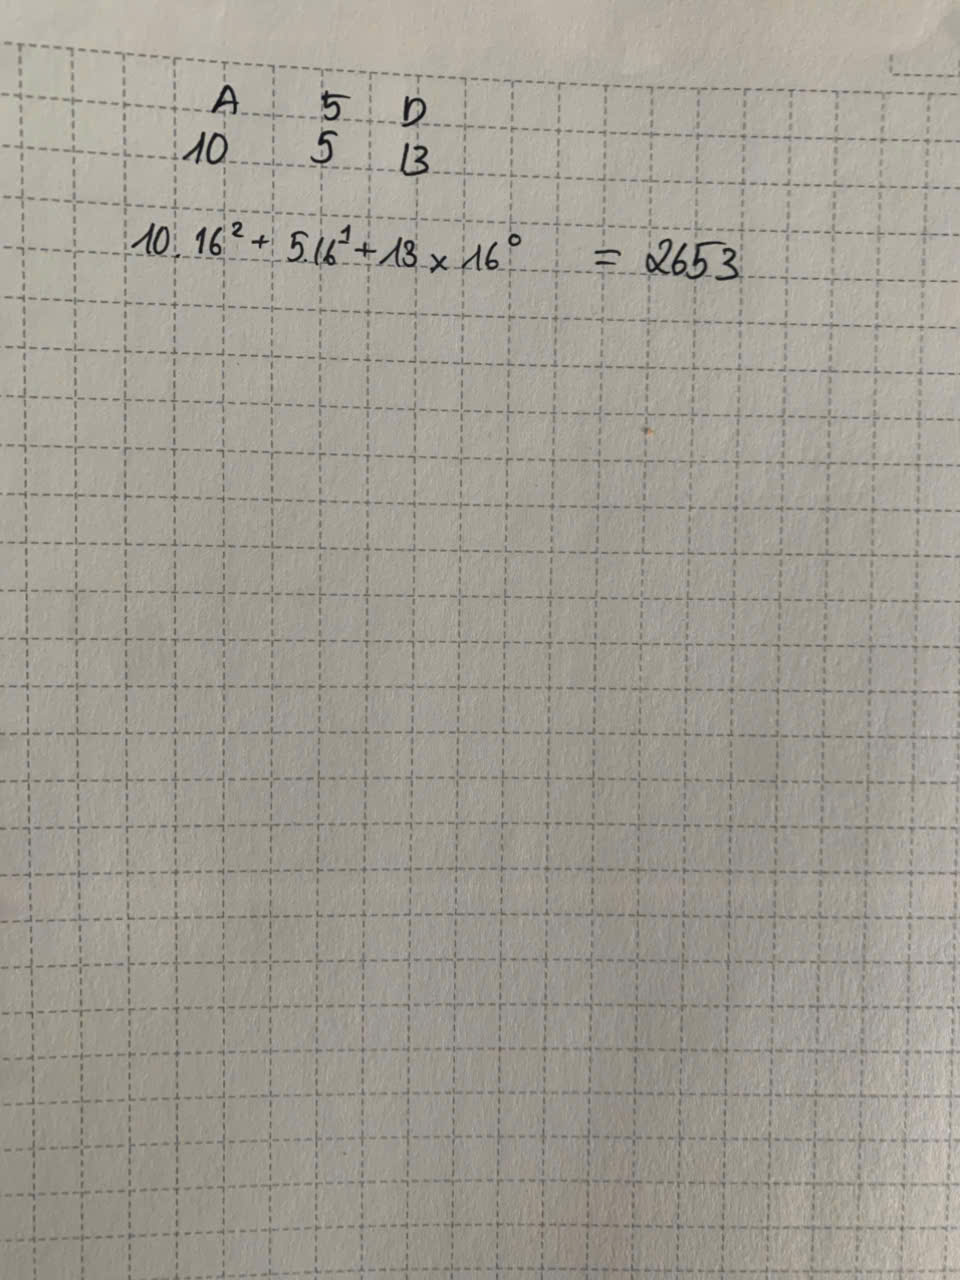 A 5 D
10 5 13
10. 16² + 5.16¹ + 13 × 16⁰ = 2653